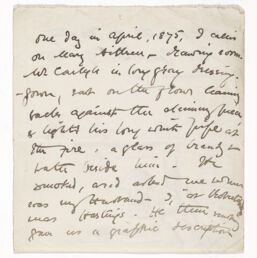 One day in April, 1875, I called
on Mary Aitken – drawing room.
Mr Carlyle in long gray dressing-
-gown, sat on the floor leaning
back against the chimney piece
& lights his long white pipe at
the fire, a glass of brandy &
water beside him. He
smoked, and asked me where
was my Husband – I, at
was Hastings. He then
gave us a graphic description